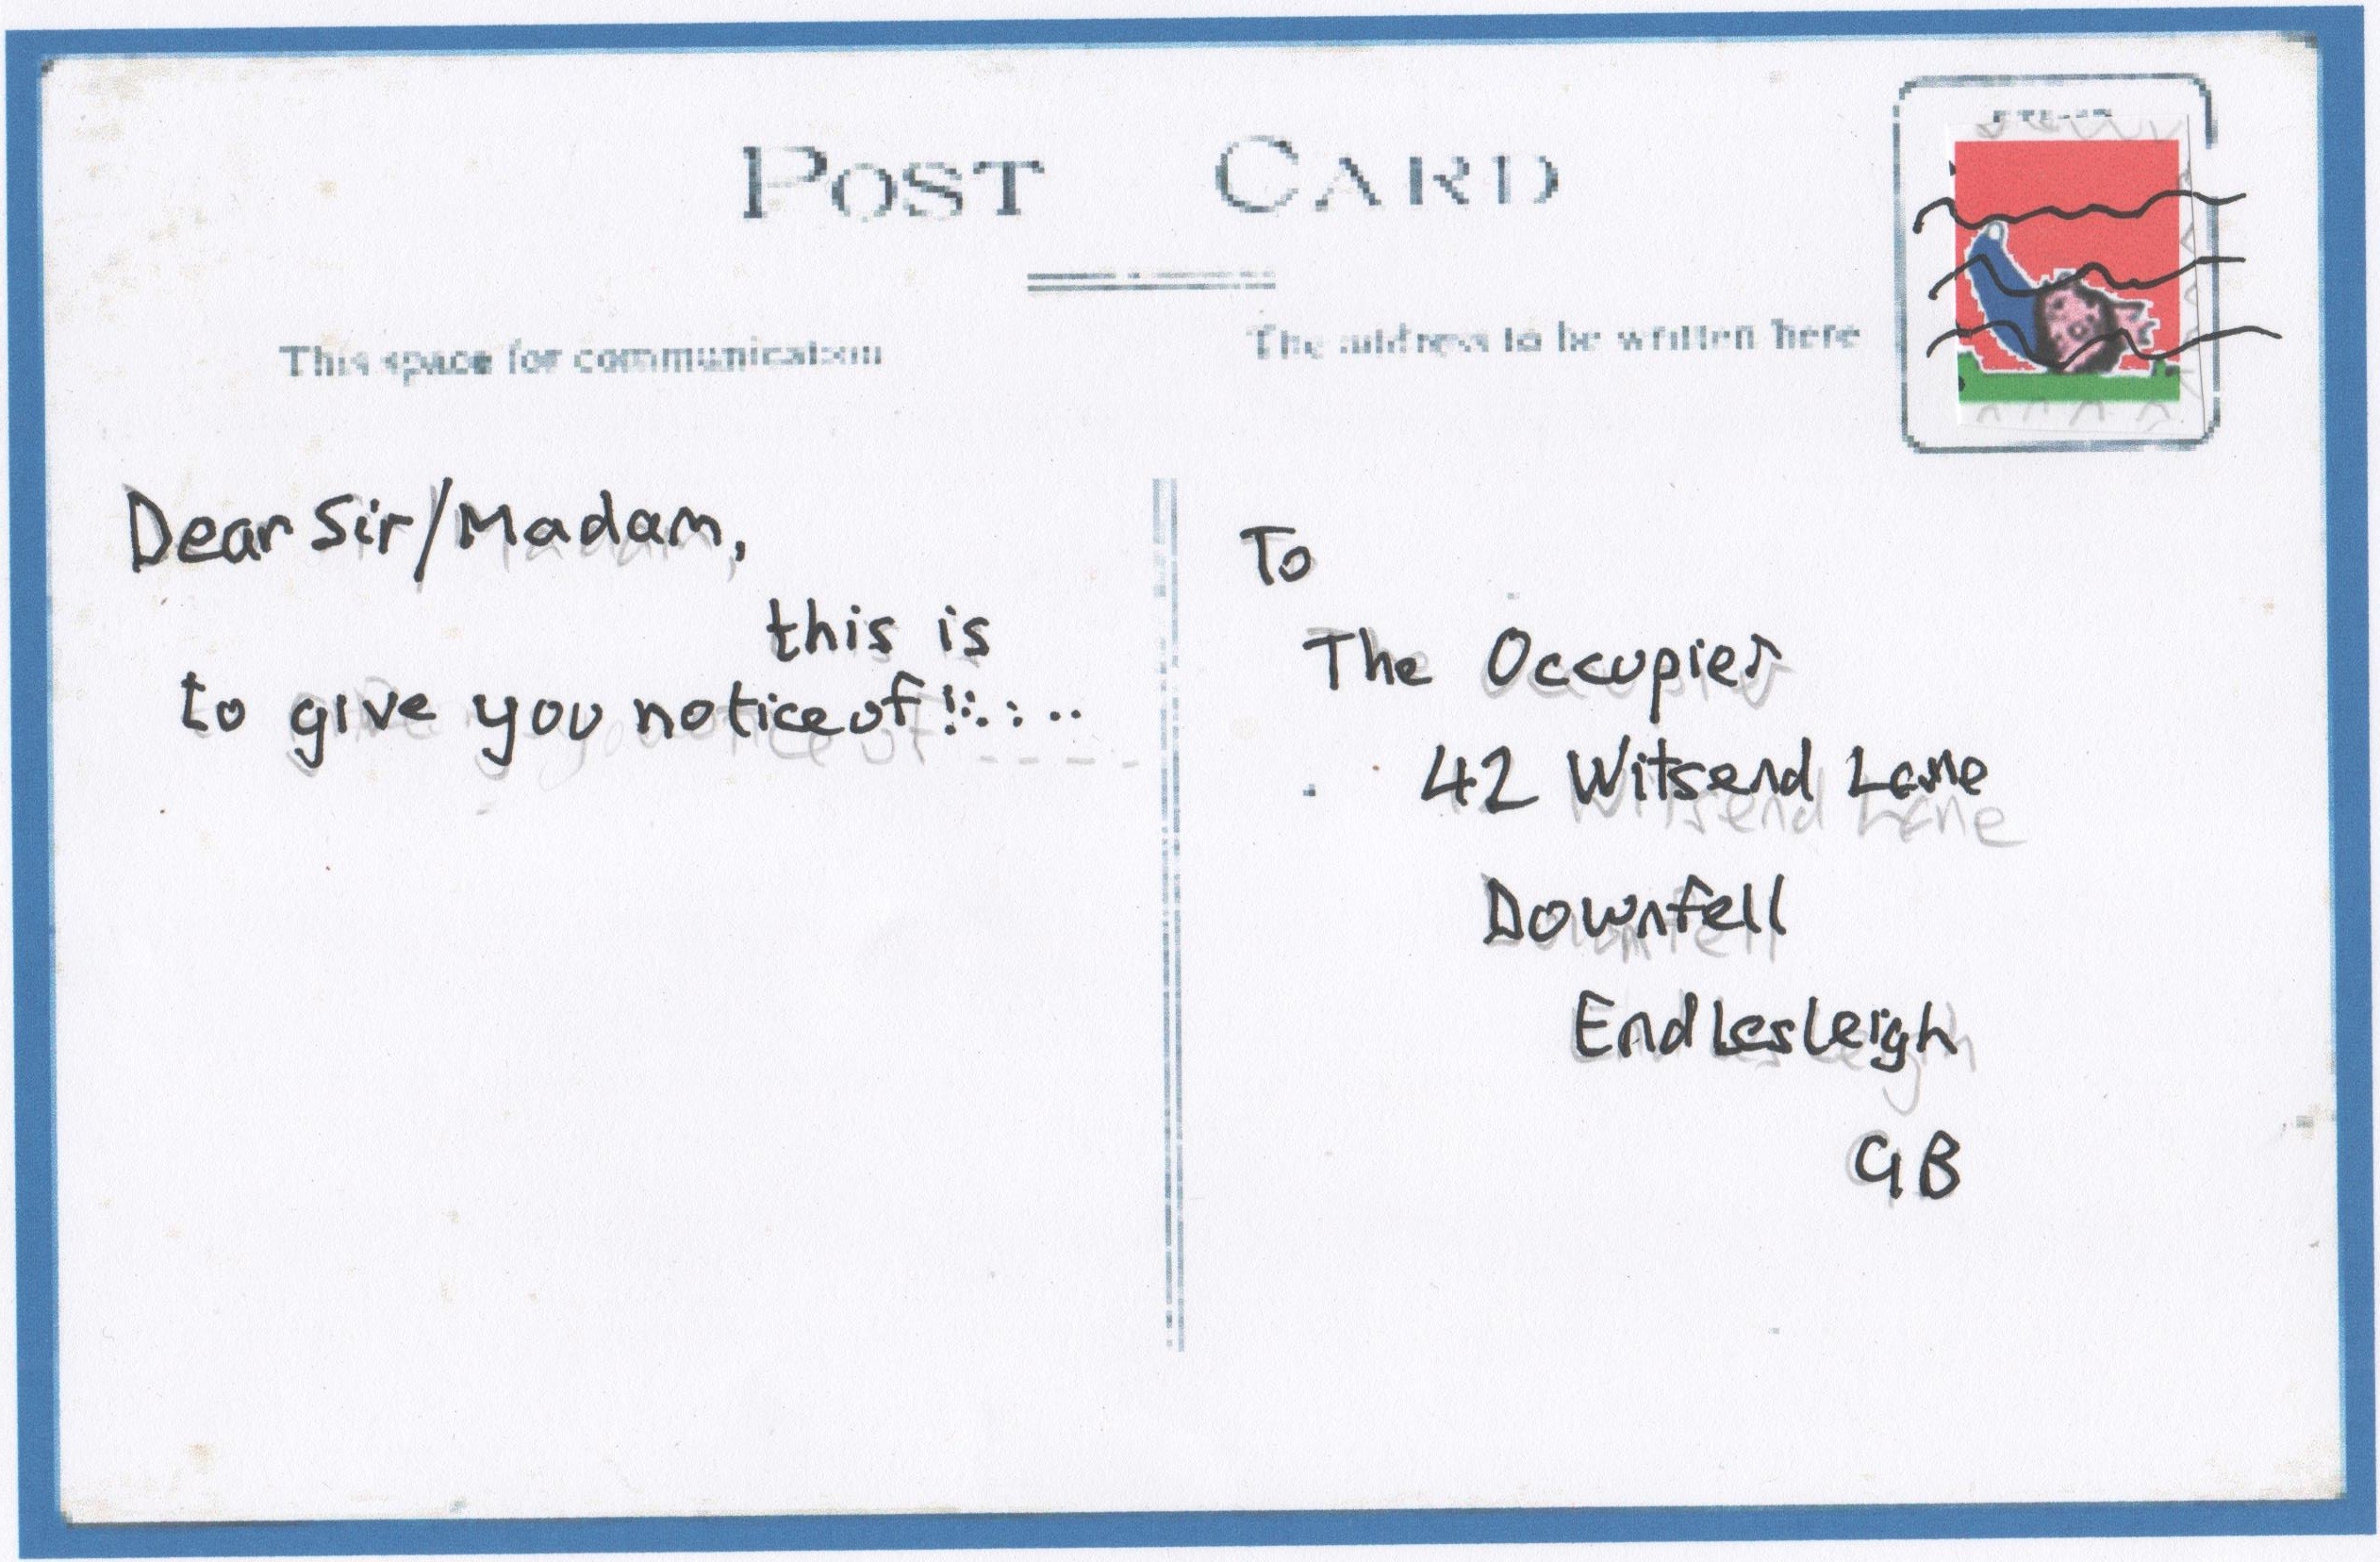 POST CARD
This space for communication
The address to be written here
Dear Sir/Madam,
this is
to give you notice of !!:. : ..
To
The Occupier
42 Witsend Lane
Downfell
Endlesleigh
GB